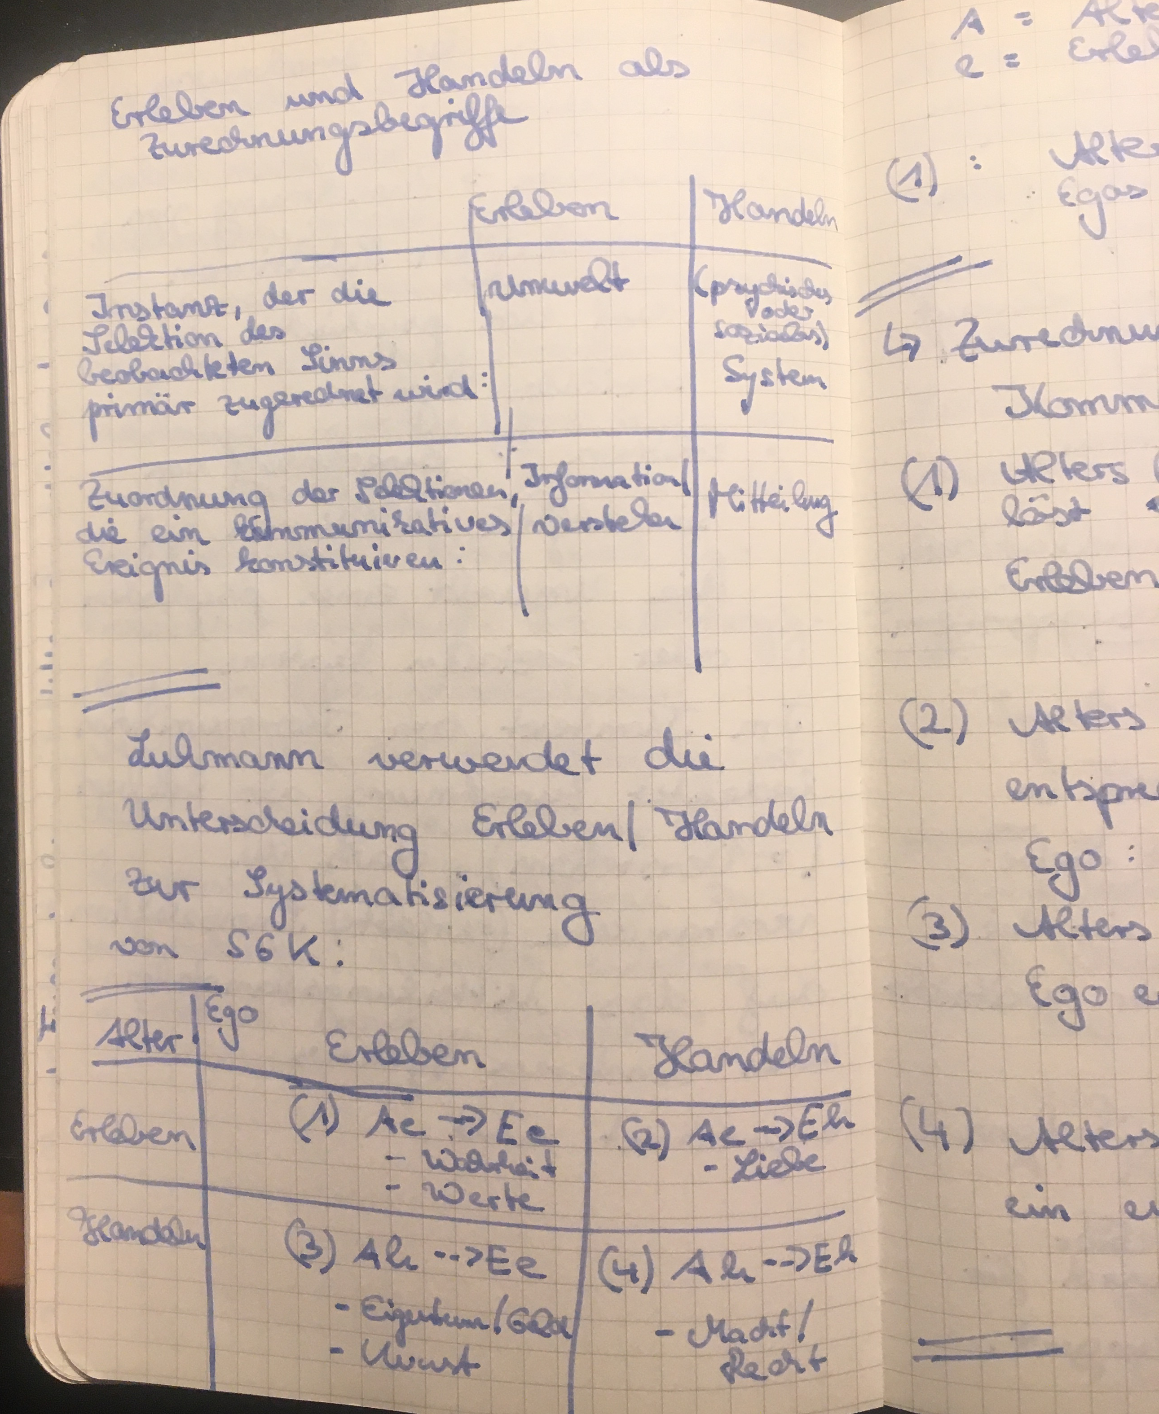 Erleben und Handeln als
Zurechnungsbegriffe
Erleben
Handeln
Instanz, der die
Selektion des
beobachteten Sinns
primär zugerechnet wird:
Umwelt
(psychisches
oder
soziales)
System
Zuordnung der Selektionen,
die ein kommunikatives
Ereignis konstituieren:
Information/
Verstehen
Mitteilung
Luhmann verwendet die
Unterscheidung Erleben/Handeln
zur Systematisierung
von SGK:
Alter
Ego
Erleben
Handeln
Erleben
(1) Ae --> Ee
- Wahrheit
- Werte
(2) Ae --> Eh
- Liebe
Handeln
(3) Ah --> Ee
- Eigentum/Geld
- Kunst
(4) Ah --> Eh
- Macht/
Recht
A = Alte
e = Erle
(1) : Alte
Egos
↳ Zurechnu
Komm
(1) Alters
löst
Erleben
(2) Alters
entspre
Ego :
(3) Alters
Ego e
(4) Alters
ein e